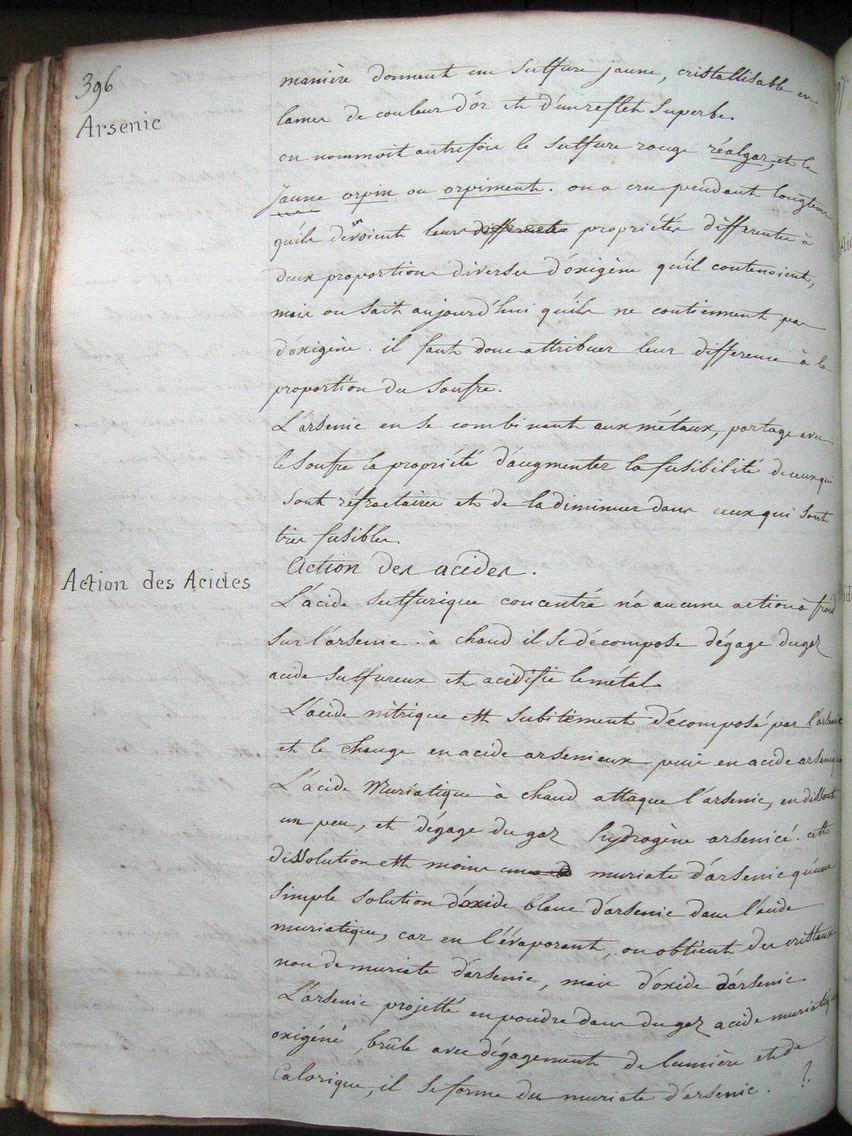 396
Arsenic
manière donnent un sulfure jaune, cristallisable en
lames de couleur d'or et d'un reflet superbe.
on nommoit autrefois le sulfure rouge réalgar, et le
jaune orpin ou orpiment. on a cru pendant longtems
qu'ils devoient leurs differentes proprietés differentes à
deux proportions diverses d'oxigène qu'ils contenoient,
mais on sait aujourd'hui qu'ils ne contiennent pas
d'oxigène. il faut donc attribuer leur difference à la
proportion du soufre.
L'arsenic en se combinant aux métaux, partage avec
le soufre la propriété d'augmenter la fusibilité de ceux qui
sont réfractaires et de la diminuer dans ceux qui sont
très fusibles.
Action des Acides
Action des acides.
L'acide sulfurique concentré n'a aucune action à froid
sur l'arsenic. à chaud il se décompose dégage du gaz
acide sulfureux et acidifie le métal.
L'acide nitrique est subitement décomposé par l'arsenic
et le change en acide arsenieux puis en acide arsenique
L'acide Muriatique à chaud attaque l'arsenic, en dissout
un peu, et dégage du gaz hydrogène arsenicé. cette
dissolution est moins un muriate d'arsenic qu'une
simple solution d'oxide blanc d'arsenic dans l'acide
muriatique, car en l'évaporant, on obtient des cristaux
non de muriate d'arsenic, mais d'oxide d'arsenic.
L'arsenic projetté en poudre dans du gaz acide muriatique
oxigéné, brûle avec dégagement de lumière et de
Calorique, il se forme du muriate d'arsenic. ?